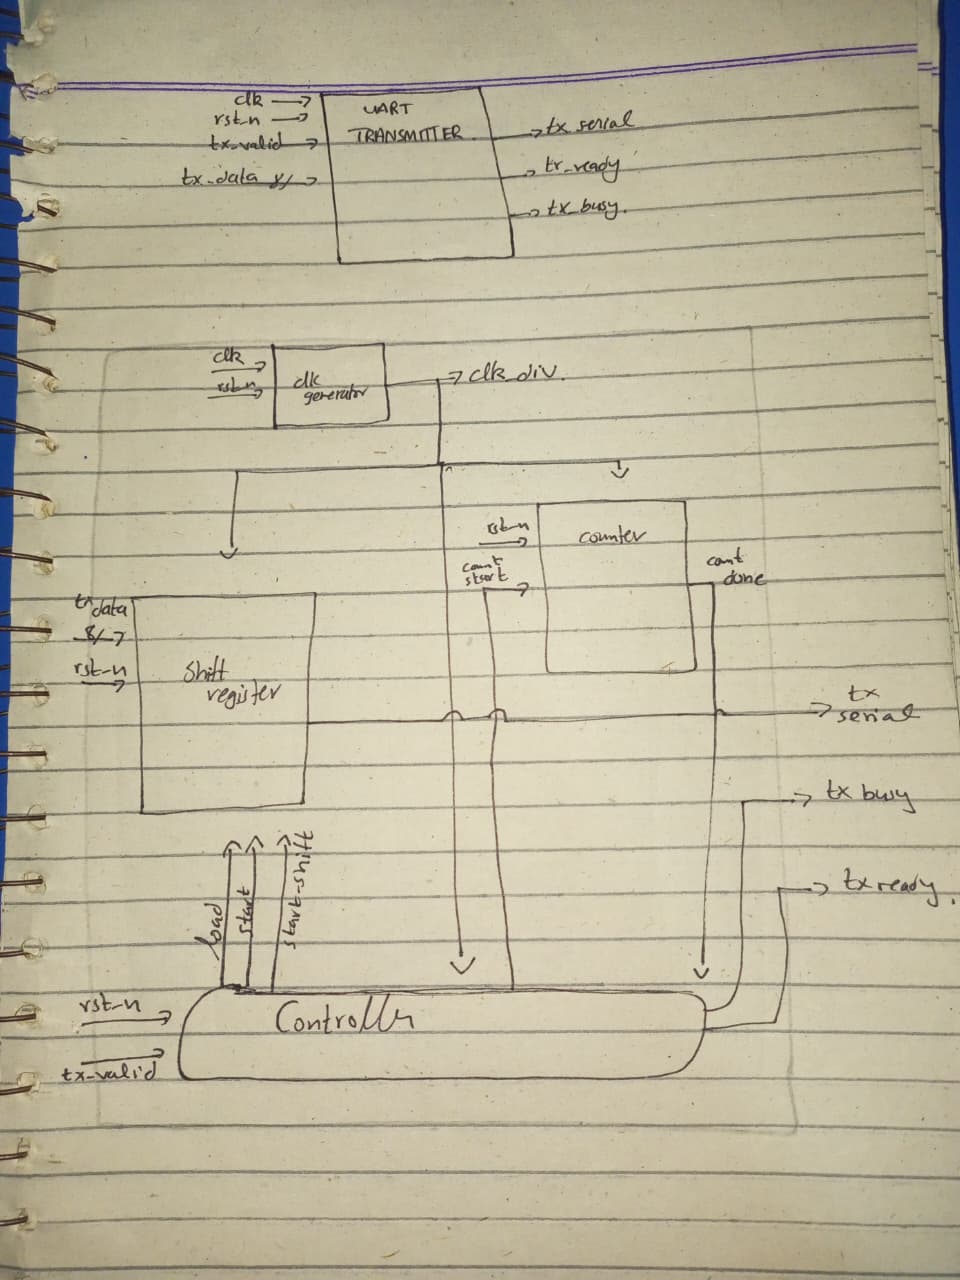 clk
rst_n
tx_valid
tx_data 8/
UART
TRANSMITTER
tx_serial
tx_ready
tx_busy.
clk
rst_n
clk
generator
clk_div.
rst_n
count
start
counter
count
done
tx data
8/
rst_n
shift
register
tx
serial
tx busy
tx ready.
load
start
start-shift
rst_n
tx_valid
Controller